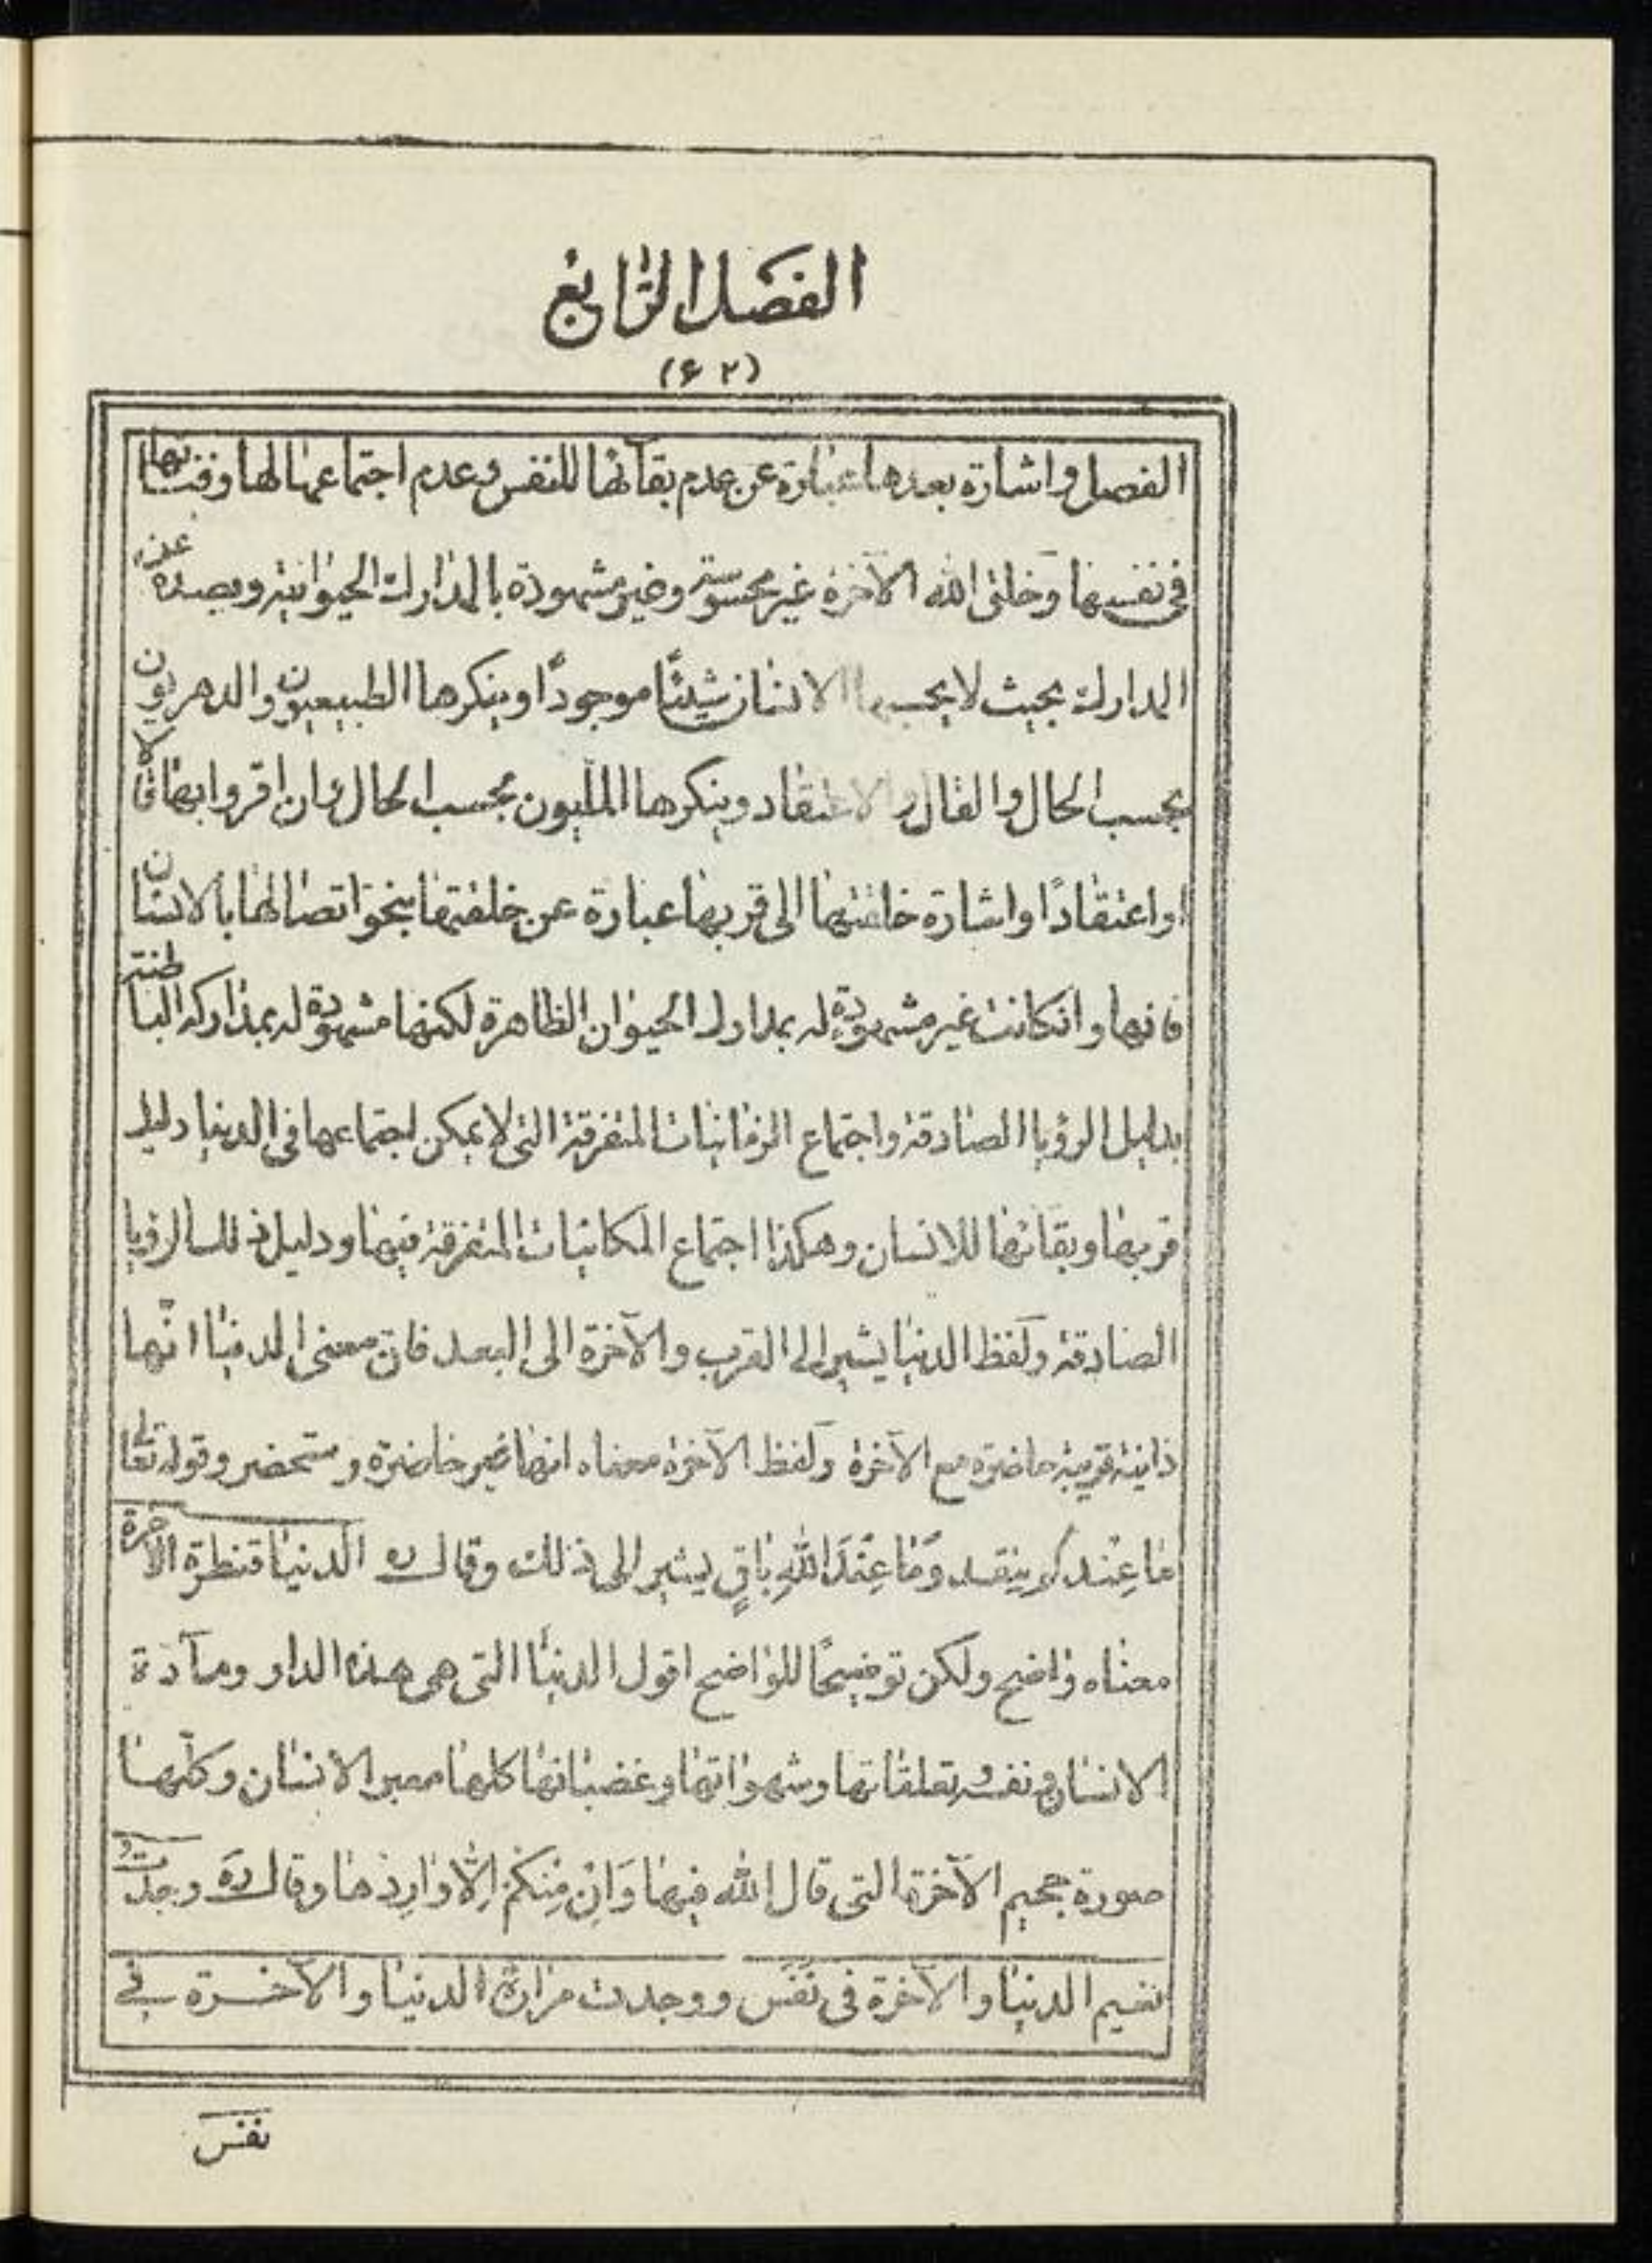 الفصل الرابع
(۶۲)
الفصل واشارة بعدها عبارة عن عدم بقآئها للنفس وعدم اجتماعها لها وفنائها
في نفسها وخلق الله الآخرة غير محسوسة وغير مشهودة بالمدارك الحيوانية وبعيدة عن
المدارك بحيث لا يحسبها الانسان شيئًا موجودًا وينكرها الطبيعيون والدهريون
بحسب الحال والقال والاعتقاد وينكرها المليون بحسب الحال وان اقروا بها قالا
او اعتقادًا واشارة خلقتها الى قربها عبارة عن خلقتها بنحو اتصالها بالانسان
فانها وانكانت غير مشهودة له بمدارك الحيوان الظاهرة لكنها مشهودة له بمداركه الباطنة
بدليل الرؤيا الصادقة واجتماع الزمانيات المتفرقة التى لا يمكن اجتماعها فى الدنيا دليل
قربها وبقائها للانسان وهكذا اجتماع المكانيات المتفرقة فيها ودليل ذلك الرؤيا
الصادقة ولفظ الدنيا يشير الى القرب والآخرة الى البعد فان معنى الدنيا انّها
دانية قريبة حاضرة مع الآخرة ولفظ الآخرة معناه انها غير حاضرة وستحضر وقوله تعالى
مَا عِنْدكم ينفد وَمَا عِنْدَ اللهِ بَاقٍ يشير الى ذلك وقال ره الدنيا قنطرة الآخرة
معناه واضح ولكن توضيحًا للواضح اقول الدنيا التى هى هذه الدار ومآدة
الانسان ونفسه وتعلقاتها وشهواتها وغضباتها كلها معبر الانسان وكلّها
صورة جحيم الآخرة التى قال الله فيها وَاِنْ مِنكُم اِلّا وارِدُها وقال ره وجدت
نعيم الدنيا والآخرة فى نَفَس ووجدت مرارة الدنيا والآخرة فى
نفس